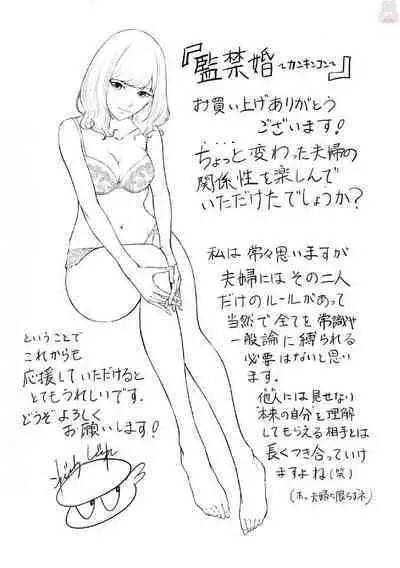 『監禁婚～カンキンコン～』
お買い上げありがとう
ございます!
ちょっと変わった夫婦の
関係性を楽しんで
いただけたでしょうか?
私は常々思いますが
夫婦にはその二人
だけのルールがあって
当然で全てを常識や
一般論に縛られる
必要はないと思い
ます。
他人には見せない
"本来の自分"を理解
してもらえる相手とは
長くつき合っていけ
ますよね(笑)
ということで
これからも
応援していただけると
とてもうれしいです。
どうぞよろしく
お願いします!